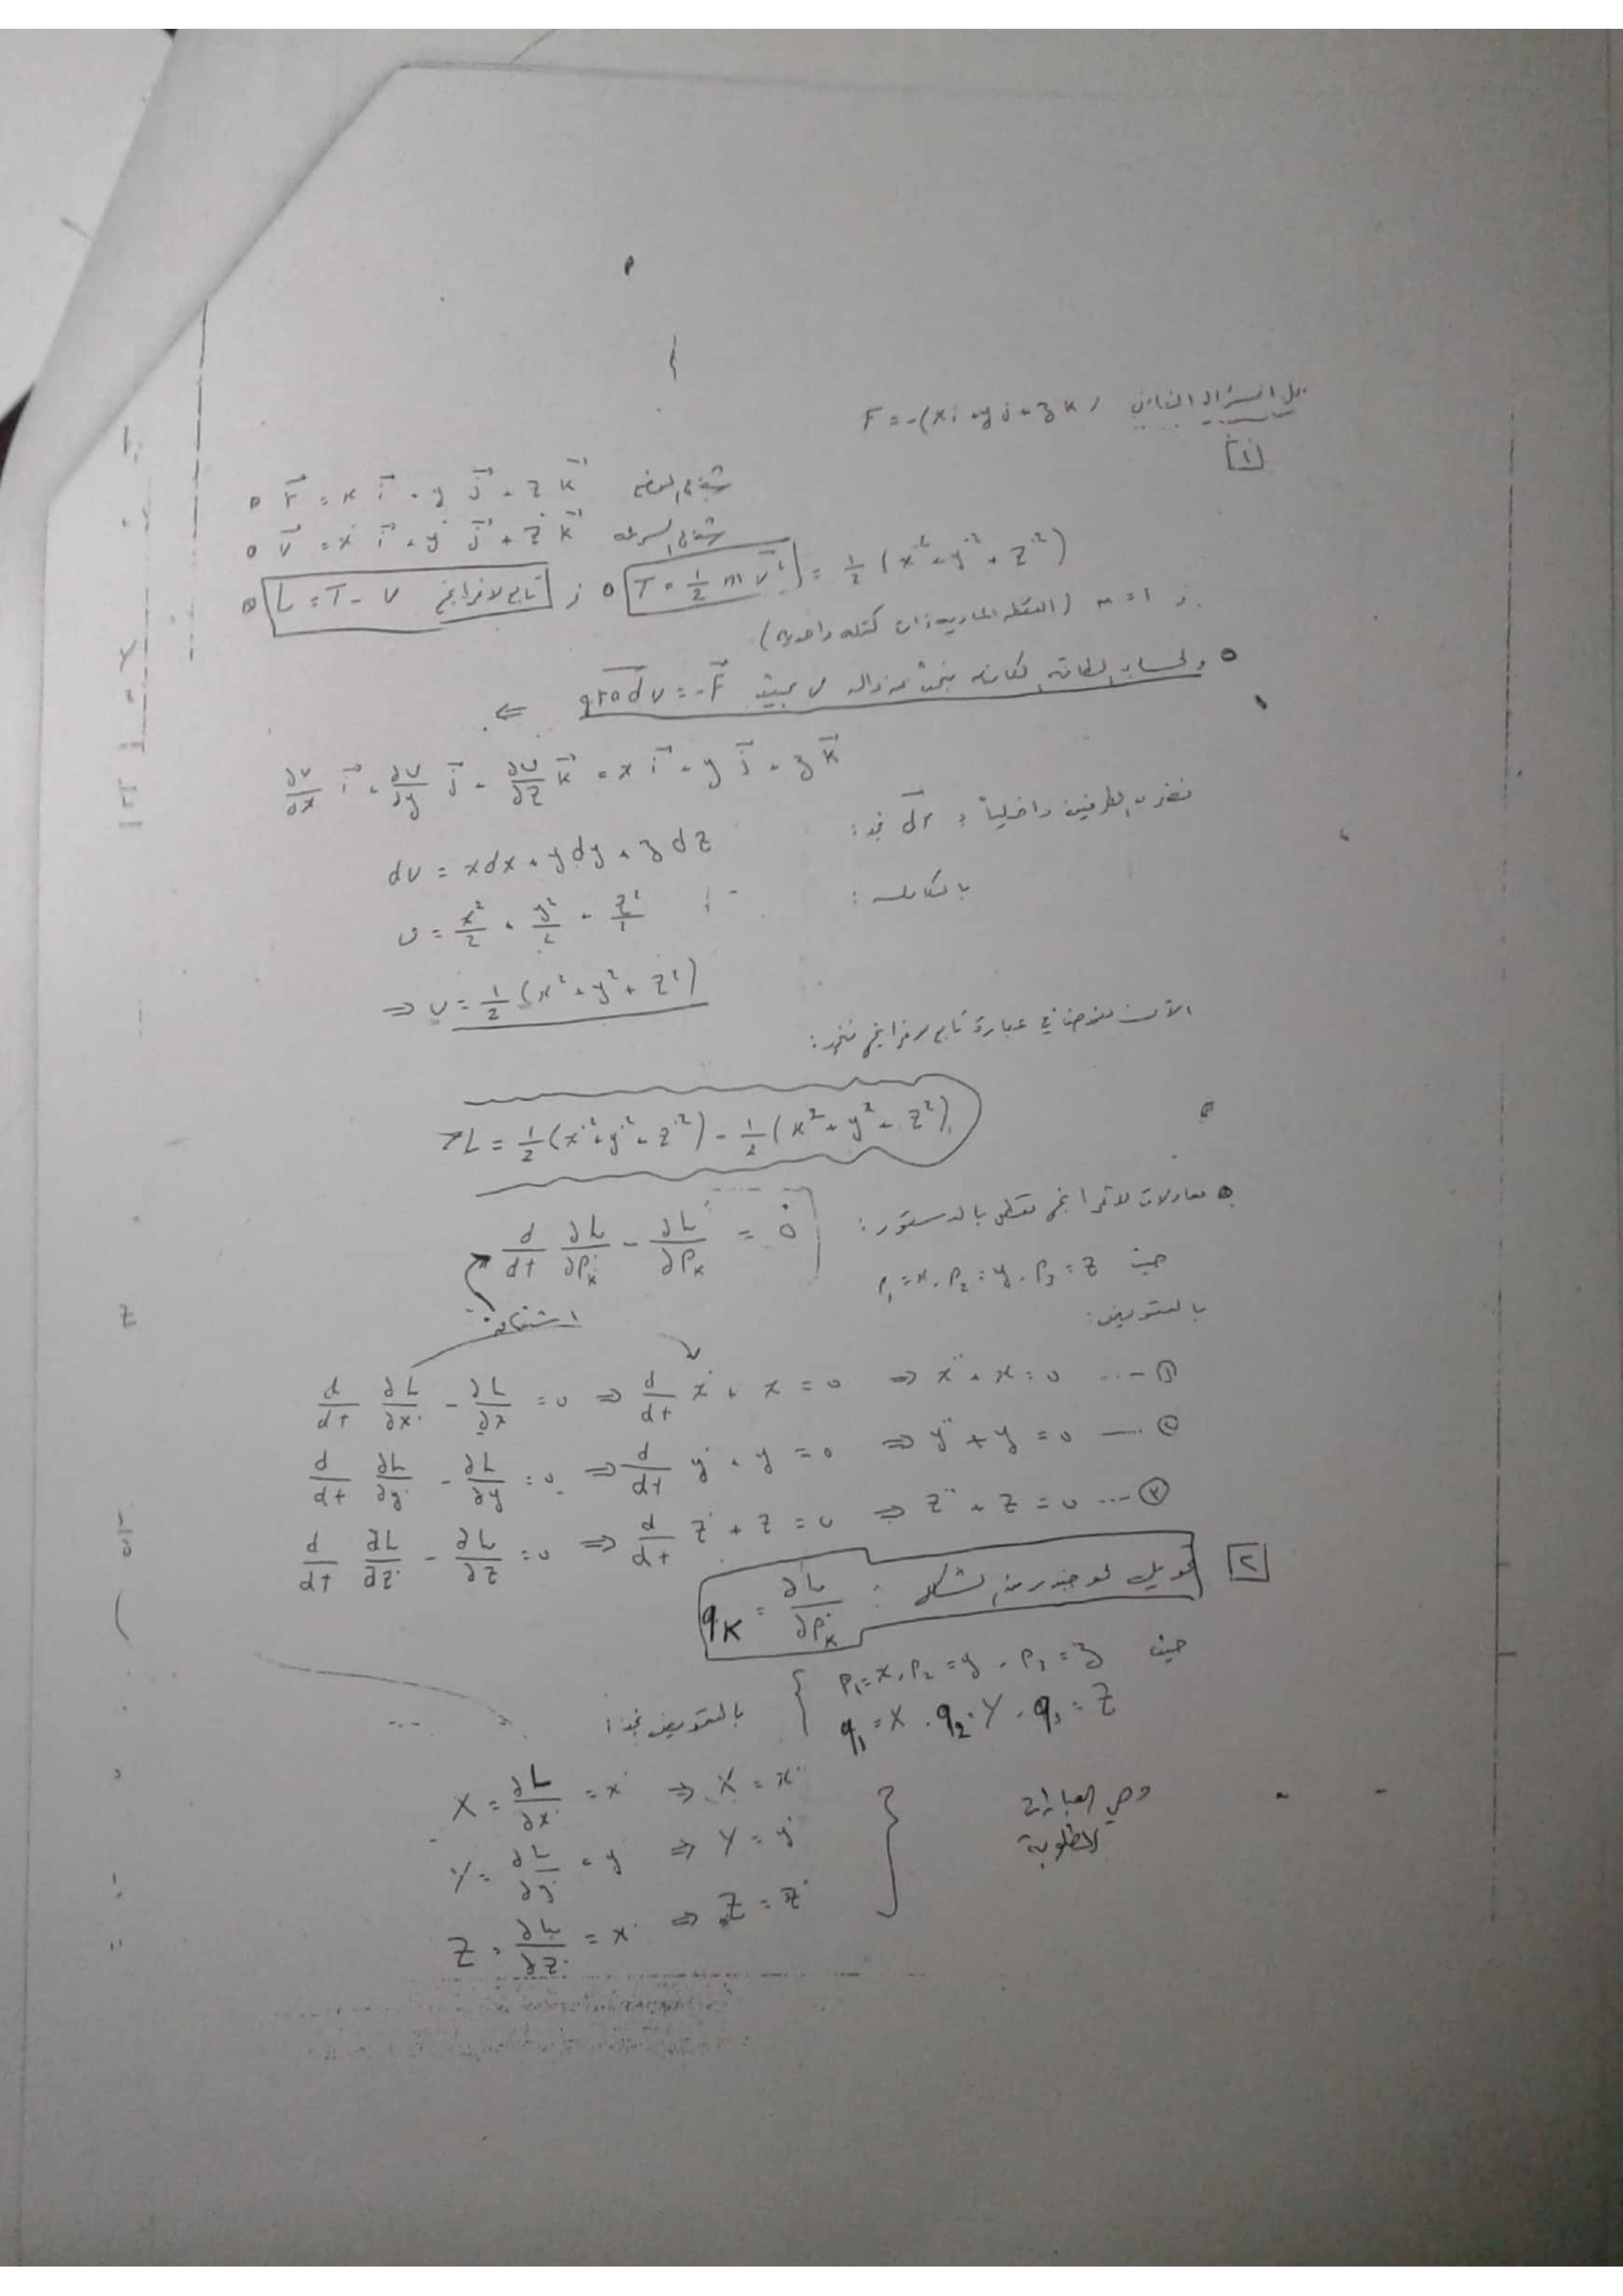 حل السؤال الثاني F = -(xi + yj + zk)
[١]
شعاع الموضع r⃗ = x i⃗ + y j⃗ + z k⃗
شعاع السرعة v⃗ = x˙ i⃗ + y˙ j⃗ + z˙ k⃗
L = T - V تابع لاغرانج ; T = 1/2 m v⃗² = 1/2 (x˙² + y˙² + z˙²)
و m = 1 (النقطة المادية ذات كتلة واحدية)
ولحساب الطاقة الكامنة نبحث عن دالة v بحيث grad v = -F⃗ ⇐
∂v/∂x i⃗ + ∂v/∂y j⃗ + ∂v/∂z k⃗ = x i⃗ + y j⃗ + z k⃗
نضرب الطرفين داخلياً بـ dr نجد:
dv = xdx + ydy + zdz
بالمكاملة:
v = x²/2 + y²/2 + z²/2
⇒ v = 1/2 (x² + y² + z²)
الآن نعوض في عبارة تابع لاغرانج فنجد:
L = 1/2 (x˙² + y˙² + z˙²) - 1/2 (x² + y² + z²)
معادلات لاغرانج تعطى بالدستور: d/dt ∂L/∂p˙k - ∂L/∂pk = 0
حيث p₁ = x, p₂ = y, p₃ = z
بالتعويض:
d/dt ∂L/∂x˙ - ∂L/∂x = 0 ⇒ d/dt x˙ + x = 0 ⇒ x¨ + x = 0 ... ①
d/dt ∂L/∂y˙ - ∂L/∂y = 0 ⇒ d/dt y˙ + y = 0 ⇒ y¨ + y = 0 ... ②
d/dt ∂L/∂z˙ - ∂L/∂z = 0 ⇒ d/dt z˙ + z = 0 ⇒ z¨ + z = 0 ... ③
[٢] تحويل لوجندر من الشكل : qK = ∂L/∂p˙K
حيث p₁ = x, p₂ = y, p₃ = z
q₁ = X, q₂ = Y, q₃ = Z
بالتعويض نجد:
X = ∂L/∂x˙ = x˙ ⇒ X = x˙
Y = ∂L/∂y˙ = y˙ ⇒ Y = y˙
Z = ∂L/∂z˙ = x˙ ⇒ Z = z˙
وهي العبارات
المطلوبة